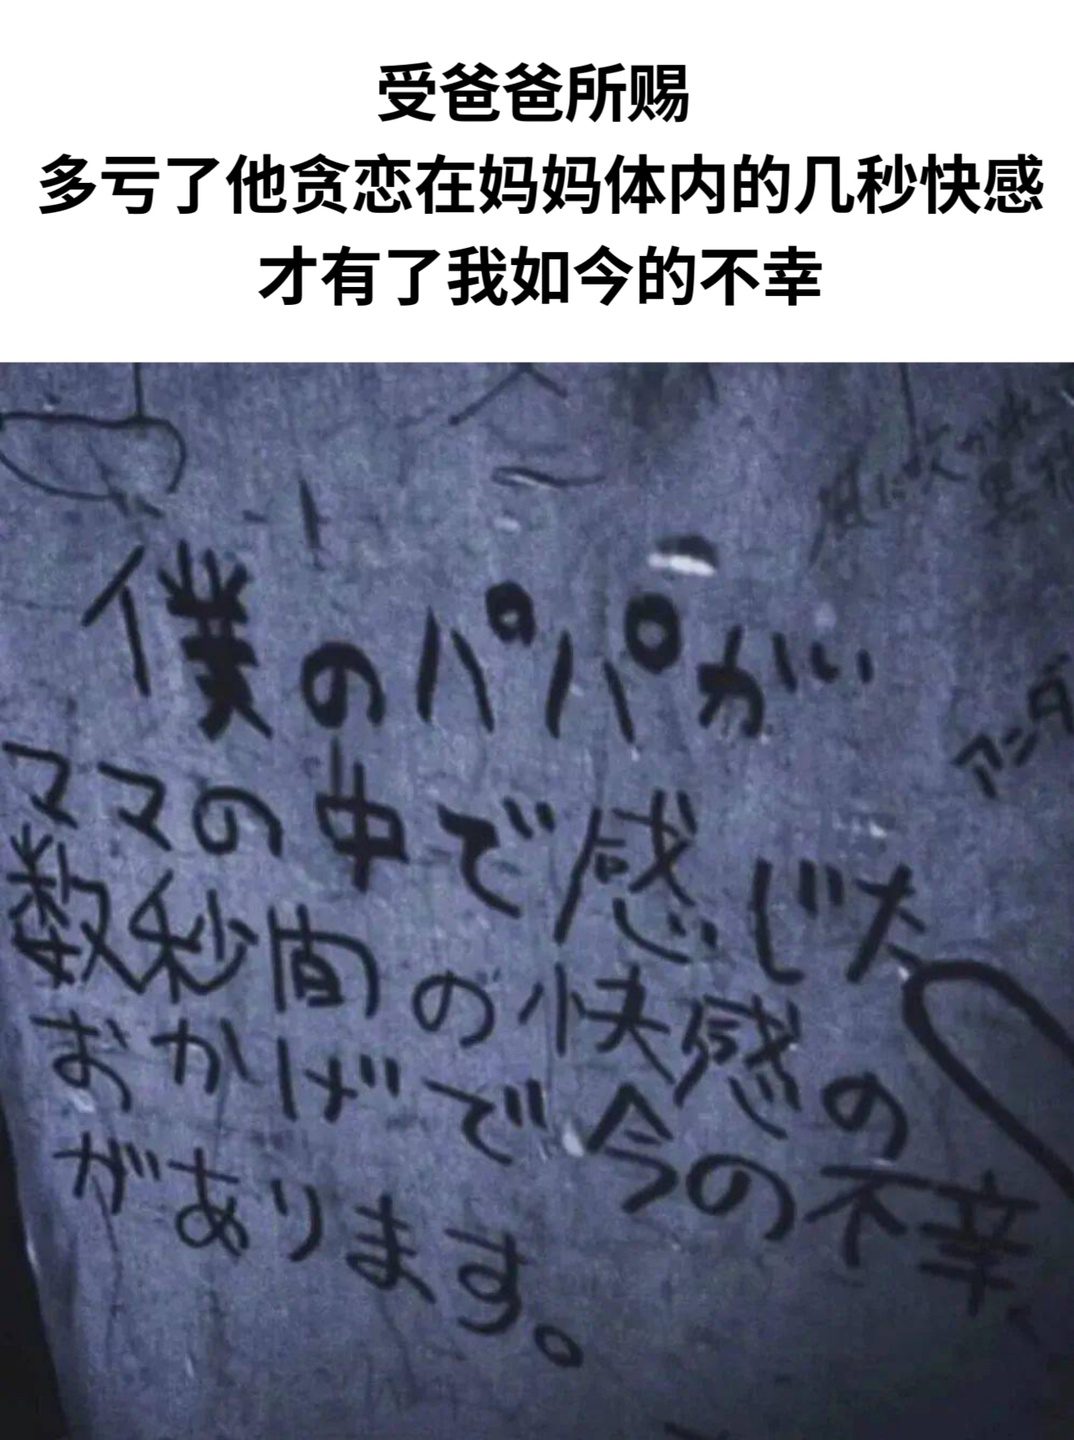 受爸爸所赐
多亏了他贪恋在妈妈体内的几秒快感
才有了我如今的不幸
僕のパパが
ママの中で感じた
数秒間の快感の
おかげで今の不幸
があります。
アンダ